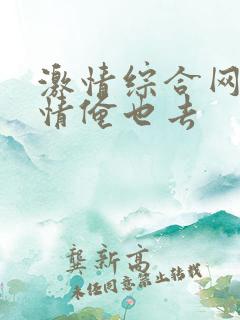 激情综合网
情俺也去
龚新高
未经同意禁止转载